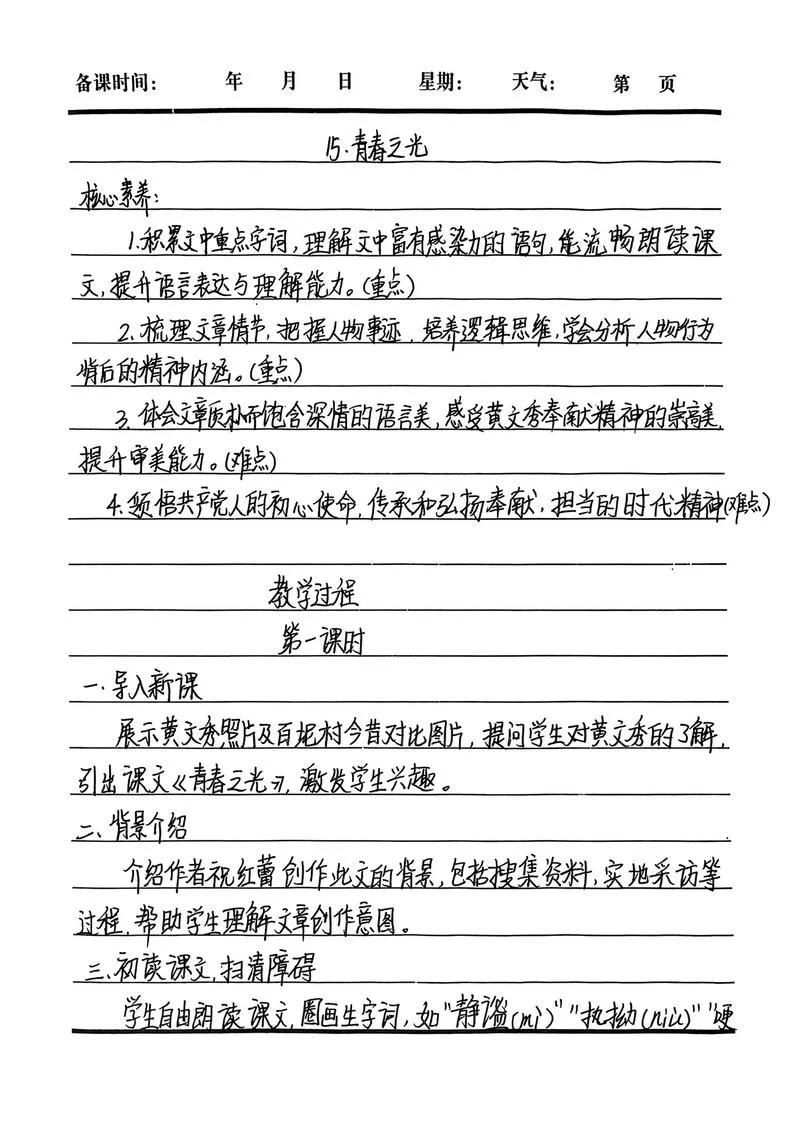 备课时间： 年 月 日 星期： 天气： 第 页
15.青春之光
核心素养：
1.积累文中重点字词，理解文中富有感染力的语句，能流畅朗读课
文，提升语言表达与理解能力。(重点)
2.梳理文章情节，把握人物事迹，培养逻辑思维，学会分析人物行为
背后的精神内涵。(重点)
3.体会文章质朴而饱含深情的语言美，感受黄文秀奉献精神的崇高美，
提升审美能力。(难点)
4.领悟共产党人的初心使命，传承和弘扬奉献、担当的时代精神(难点)
教学过程
第一课时
一.导入新课
展示黄文秀照片及百坭村今昔对比图片，提问学生对黄文秀的了解，
引出课文《青春之光》，激发学生兴趣。
二、背景介绍
介绍作者祝红蕾创作此文的背景，包括搜集资料，实地采访等
过程，帮助学生理解文章创作意图。
三、初读课文，扫清障碍
学生自由朗读课文，圈画生字词，如"静谧(mì)""执拗(niù)""哽